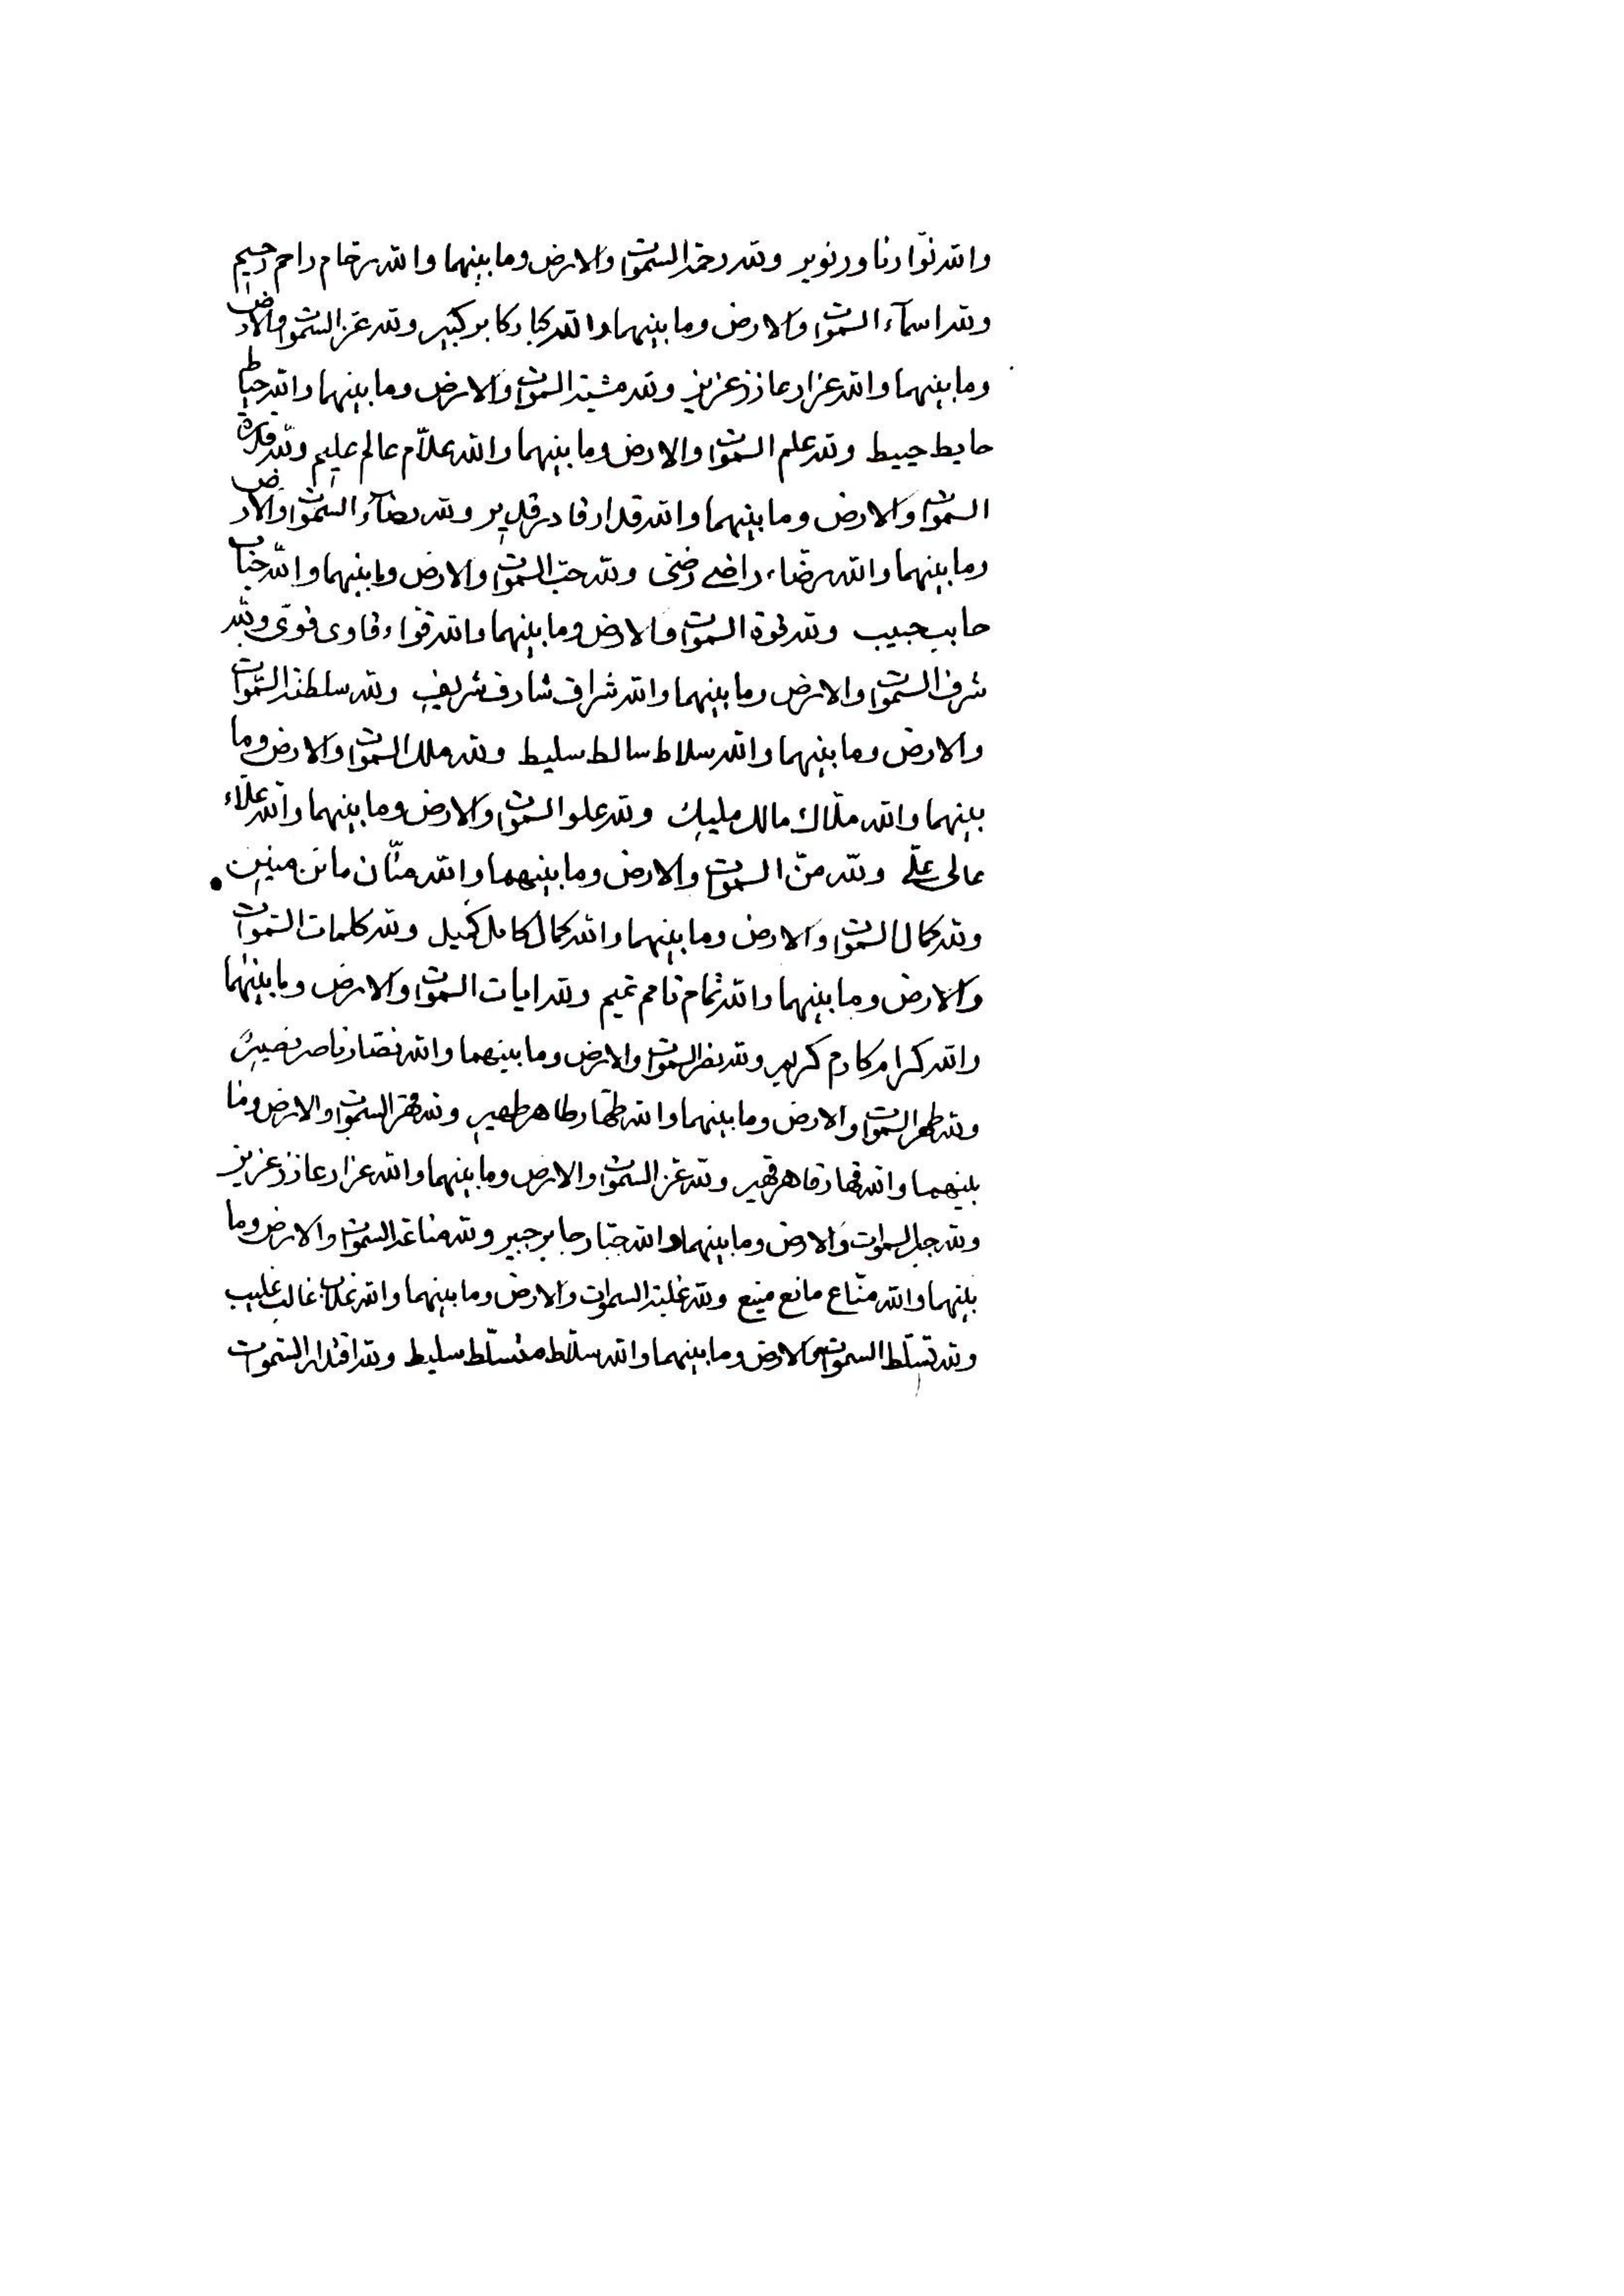 والله نوّار ناور نوير ولله رحمة السموات والارض وما بينهما والله رحّام راحم رحيم
ولله اسمآء السموات والارض وما بينهما والله كبار كابر كبير ولله عز السموات والارض
وما بينهما والله عزاز عازز عزيز ولله مشية السموات والارض وما بينهما والله حياط
حايط حييط ولله علم السموات والارض وما بينهما والله علاّم عالم عليم ولله قدرة
السموات والارض وما بينهما والله قدار قادر قدير ولله رضآء السموات والارض
وما بينهما والله رضّاء راضى رضى ولله حبّ السموات والارض وما بينهما والله حبّاب
حابب حبيب ولله قوة السموات والارض وما بينهما والله قواء قاوى قوىّ ولله
شرف السموات والارض وما بينهما والله شراف شارف شريف ولله سلطنة السموات
والارض وما بينهما والله سلاط سالط سليط ولله ملك السموات والارض وما
بينهما والله ملّاك مالك مليك ولله علو السموات والارض وما بينهما والله علّاء
عالى علىّ ولله منّ السموات والارض وما بينهما والله منّان مانن منين
ولله كمال السموات والارض وما بينهما والله كمال كامل كميل ولله كلمات السموات
والارض وما بينهما والله تمام تامم تميم ولله ايات السموات والارض وما بينهما
والله كرام كارم كريم ولله نصر السموات والارض وما بينهما والله نصّار ناصر نصير
ولله طهر السموات والارض وما بينهما والله طهّار طاهر طهير ولله قهر السموات والارض وما
بينهما والله قهار قاهر قهير ولله عز السموات والارض وما بينهما والله عزاز عازز عزيز
ولله جبر السموات والارض وما بينهما والله جبّار جابر جبير ولله مناعة السموات والارض وما
بينهما والله منّاع مانع منيع ولله غلبة السموات والارض وما بينهما والله غلاب غالب غليب
ولله تسلّط السموات والارض وما بينهما والله سلّاط متسلّط سليط ولله اقتدار السموات